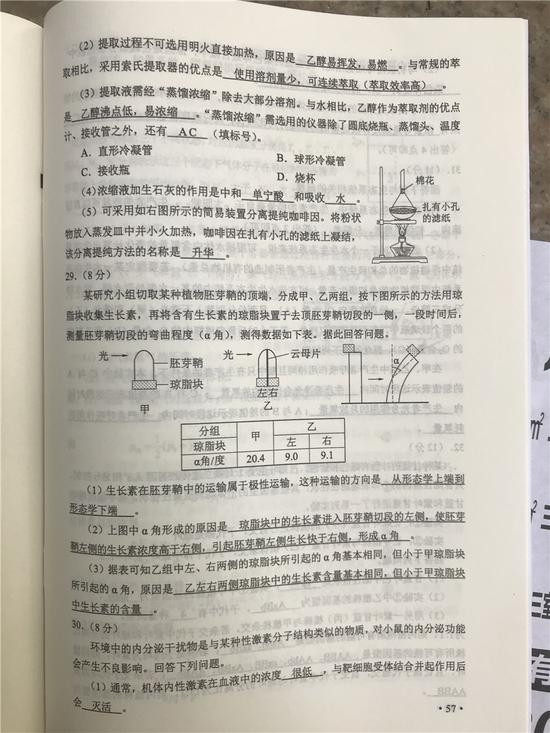 （2）提取过程不可选用明火直接加热，原因是 乙醇易挥发，易燃 。与常规的萃
取相比，采用索氏提取器的优点是 使用溶剂量少，可连续萃取（萃取效率高） 。
（3）提取液需经“蒸馏浓缩”除去大部分溶剂。与水相比，乙醇作为萃取剂的优点
是 乙醇沸点低，易浓缩 。“蒸馏浓缩”需选用的仪器除了圆底烧瓶、蒸馏头、温度
计、接收管之外，还有 AC （填标号）。
A．直形冷凝管 B．球形冷凝管
C．接收瓶 D．烧杯
（4）浓缩液加生石灰的作用是中和 单宁酸 和吸收 水 。
（5）可采用如右图所示的简易装置分离提纯咖啡因。将粉状
物放入蒸发皿中并小火加热，咖啡因在扎有小孔的滤纸上凝结，
该分离提纯方法的名称是 升华 。
棉花
扎有小孔
的滤纸
29．（8分）
某研究小组切取某种植物胚芽鞘的顶端，分成甲、乙两组，按下图所示的方法用琼
脂块收集生长素，再将含有生长素的琼脂块置于去顶胚芽鞘切段的一侧，一段时间后，
测量胚芽鞘切段的弯曲程度（α角），测得数据如下表。据此回答问题。
光
胚芽鞘
琼脂块
甲
光
云母片
左右
乙
α
分组 甲 乙
琼脂块 左 右
α角/度 20.4 9.0 9.1
（1）生长素在胚芽鞘中的运输属于极性运输，这种运输的方向是 从形态学上端到
形态学下端 。
（2）上图中α角形成的原因是 琼脂块中的生长素进入胚芽鞘切段的左侧，使胚芽
鞘左侧的生长素浓度高于右侧，引起胚芽鞘左侧生长快于右侧，形成α角 。
（3）据表可知乙组中左、右两侧的琼脂块所引起的α角基本相同，但小于甲琼脂块
所引起的α角，原因是 乙左右两侧琼脂块中的生长素含量基本相同，但小于甲琼脂块
中生长素的含量 。
30．（8分）
环境中的内分泌干扰物是与某种性激素分子结构类似的物质，对小鼠的内分泌功能
会产生不良影响。回答下列问题。
（1）通常，机体内性激素在血液中的浓度 很低 ，与靶细胞受体结合并起作用后
会 灭活 。
·57·